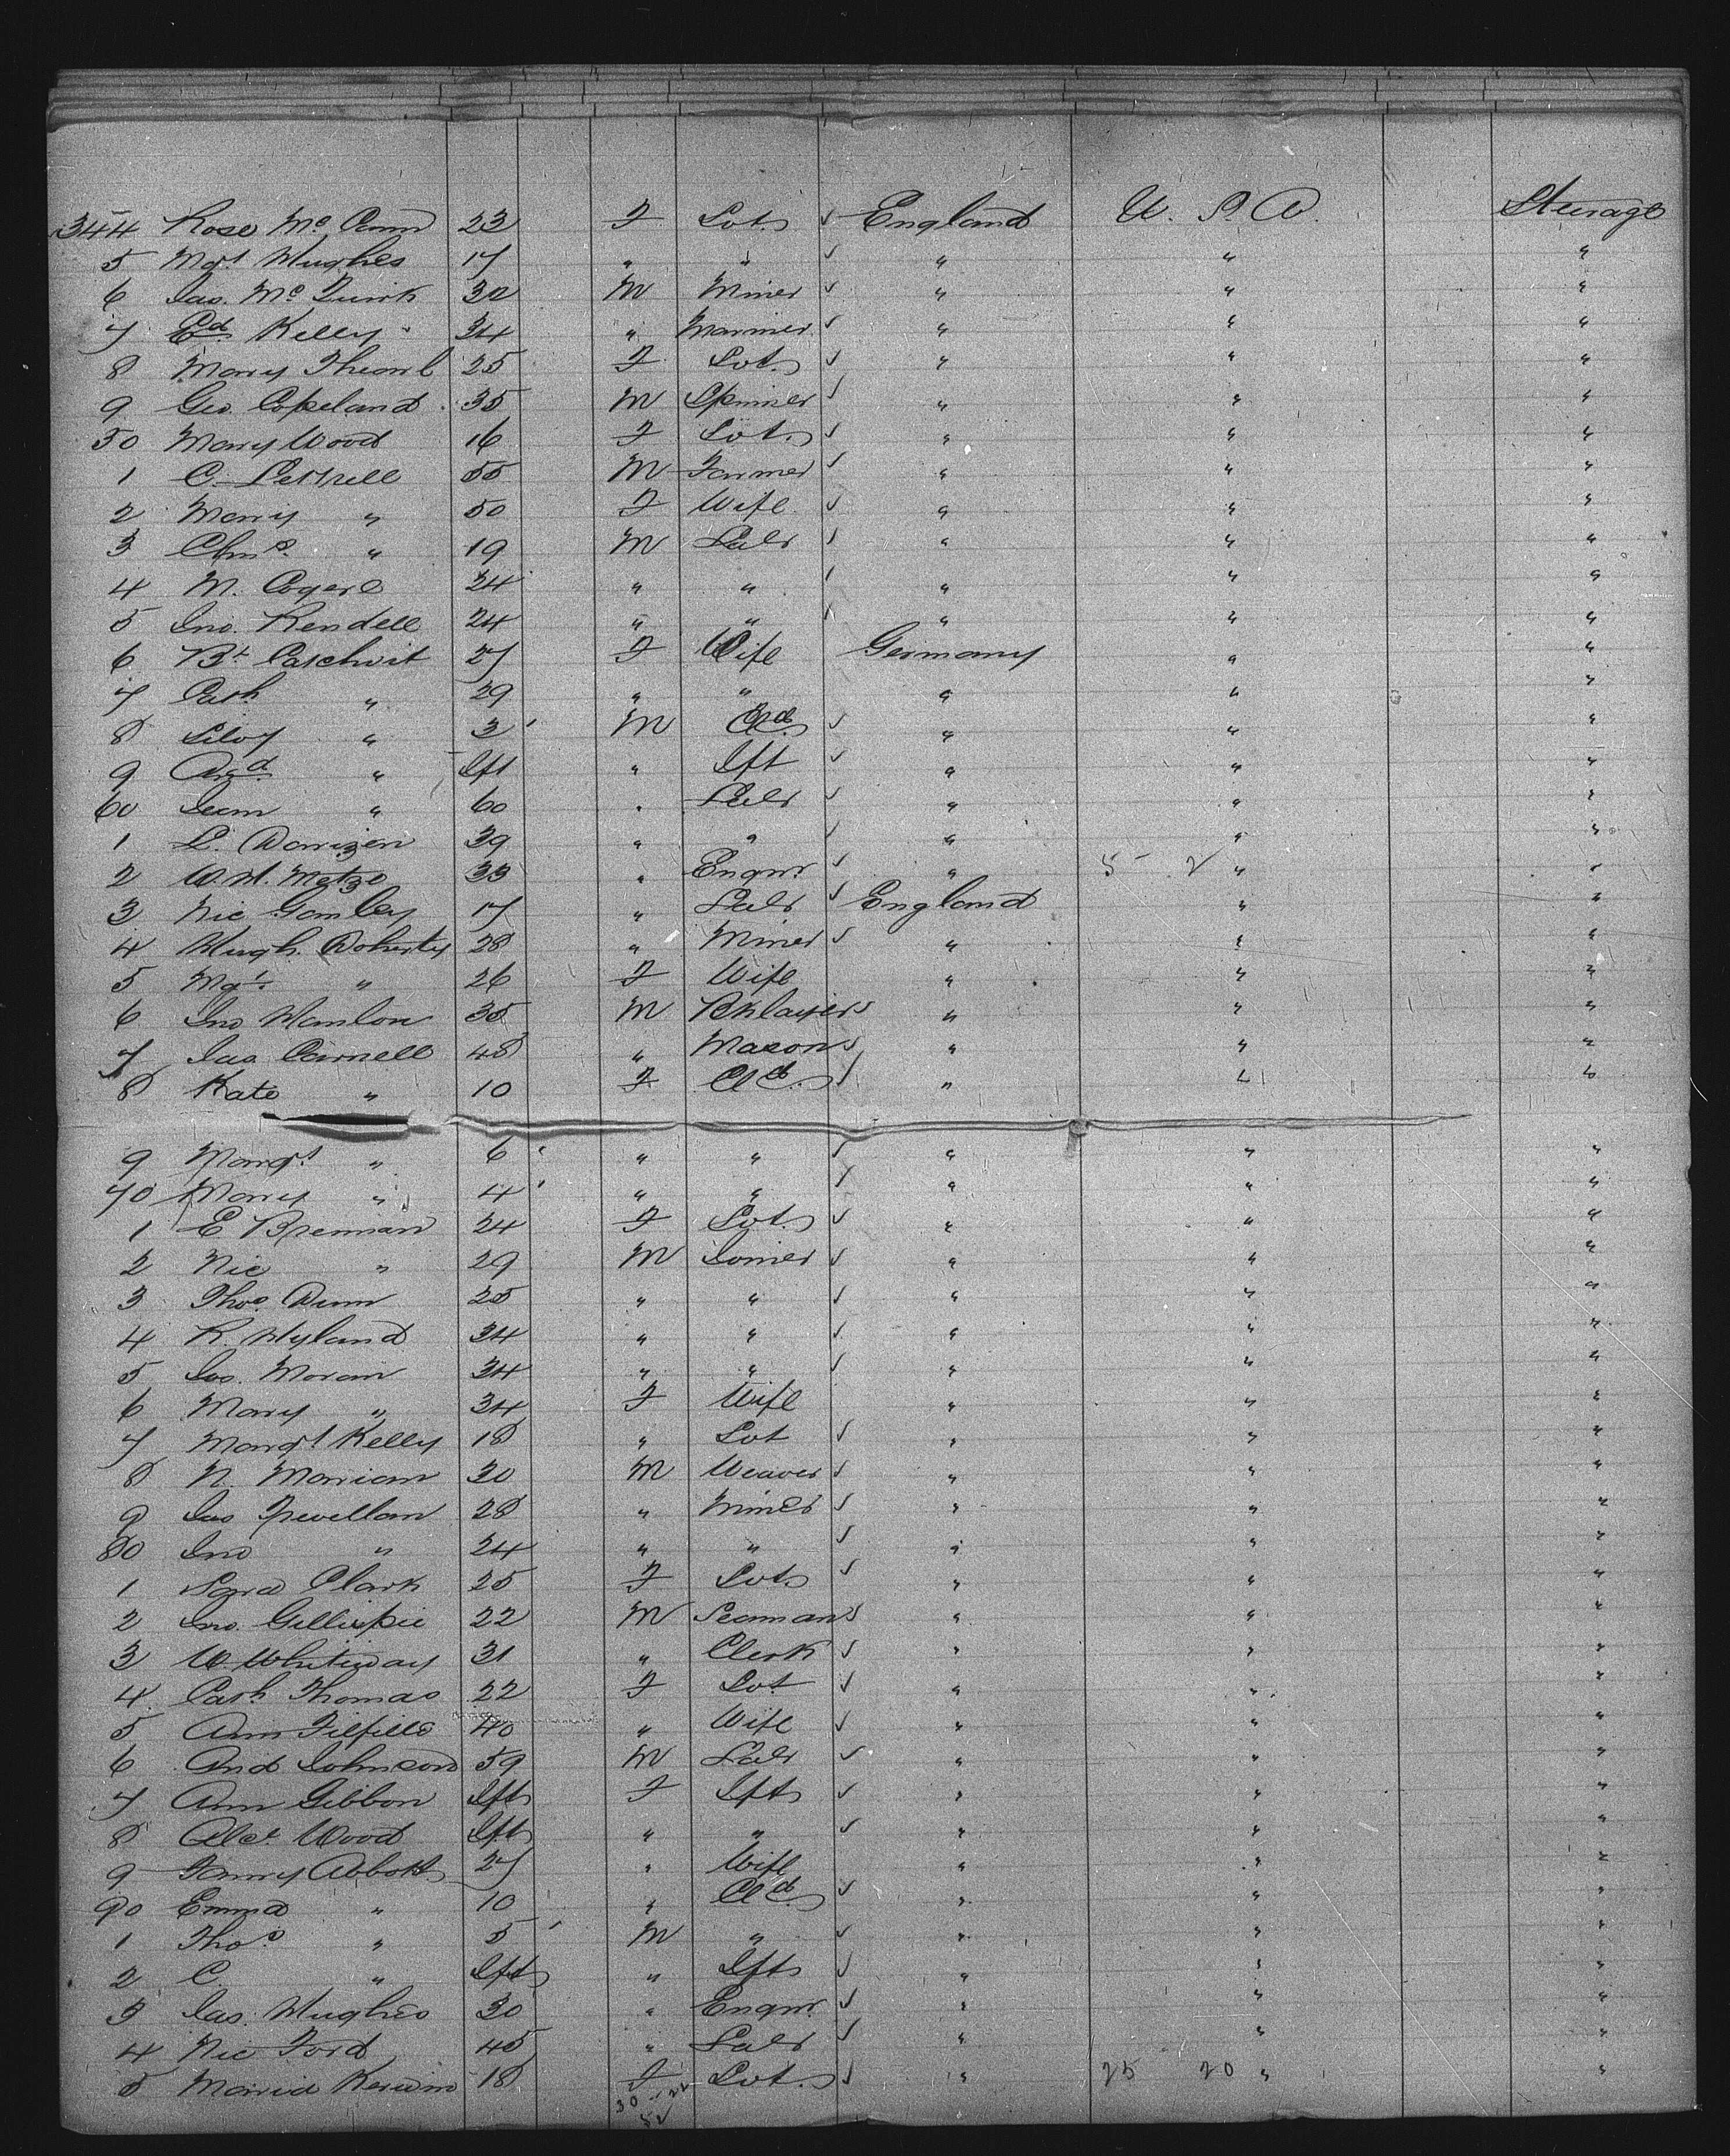 344 Rose McCann 23 F Sot. ✓ England U. S. A. Steerage
5 Mgt Hughes 17 " " ✓ " " "
6 Jas. McQuirk 32 M Miner ✓ " " "
7 Ed. Kelly 34 " Mariner ✓ " " "
8 Mary 25 F Sot. ✓ " " "
9 Geo. Copeland 35 M Spinner ✓ " " "
50 Mary Wood 16 F Sot. ✓ " " "
1 C. 55 M Farmer ✓ " " "
2 Mary " 50 F Wife ✓ " " "
3 Chas. " 19 M Labr ✓ " " "
4 M. 24 " " ✓ " " "
5 Jno. Kendell 24 " " ✓ " " "
6 Bt. Paschvit 27 F Wife Germany " "
7 Cath " 29 " " " " "
8 " 3 M Cld ✓ " " "
9 " Ift " Ift ✓ " " "
60 " 60 " Labr ✓ " " "
1 L. 39 " " ✓ " " "
2 W. H. Metze 33 " Engnr. ✓ " 5 - 2 " "
3 Nic 17 " Labr ✓ England " "
4 Hugh Doherty 28 " Miner ✓ " " "
5 Mgt. " 26 F Wife " " "
6 Jno Hanlon 35 M Bklayer ✓ " " "
7 Jas Carnell 48 " Mason ✓ " " "
8 Kate " 10 F Cld. ✓ " " "
9 Margt " 6 " " ✓ " " "
70 Mary " 4 " " ✓ " " "
1 E Brennan 24 F Sot. ✓ " " "
2 Nic " 29 M Joiner ✓ " " "
3 Thos. Dunn 25 " " ✓ " " "
4 R. Hyland 34 " " ✓ " " "
5 Jos. Moran 34 " " ✓ " " "
6 Mary " 34 F Wife " " "
7 Margt Kelly 18 " Sot ✓ " " "
8 N. 30 M Weaver ✓ " " "
9 Jas Trevellan 28 " Miner ✓ " " "
80 Jno " 24 " " ✓ " " "
1 Clark 25 F Sot ✓ " " "
2 Jno. Gillispie 22 M Seaman ✓ " " "
3 W. Whiteway 31 " Clerk ✓ " " "
4 Cath Thomas 22 F Sot ✓ " " "
5 Ann 40 " Wife ✓ " " "
6 And Johnson 59 M Labr ✓ " " "
7 Ann Gibbon Ift F Ift ✓ " " "
8 Alet. Wood Ift " " ✓ " " "
9 Fanny Abbott 27 " Wife " " "
90 Emma " 10 " Cld. ✓ " " "
1 Thos. " 5 M " ✓ " " "
2 C. " Ift " Ift ✓ " " "
3 Jas. Hughes 30 " Engnr. ✓ " " "
4 Nic Ford 45 " Labr ✓ " " "
5 Maria Kerwin 18 F Sot. ✓ " 25 20 " "
30 22
52